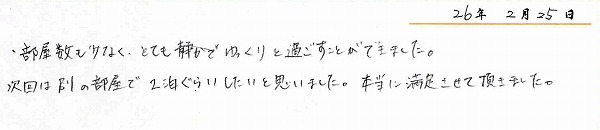 26年 2月25日
・部屋数も少なく、とても静かでゆっくりと過ごすことができました。
次回は別の部屋で2泊ぐらいしたいと思いました。本当に満足させて頂きました。